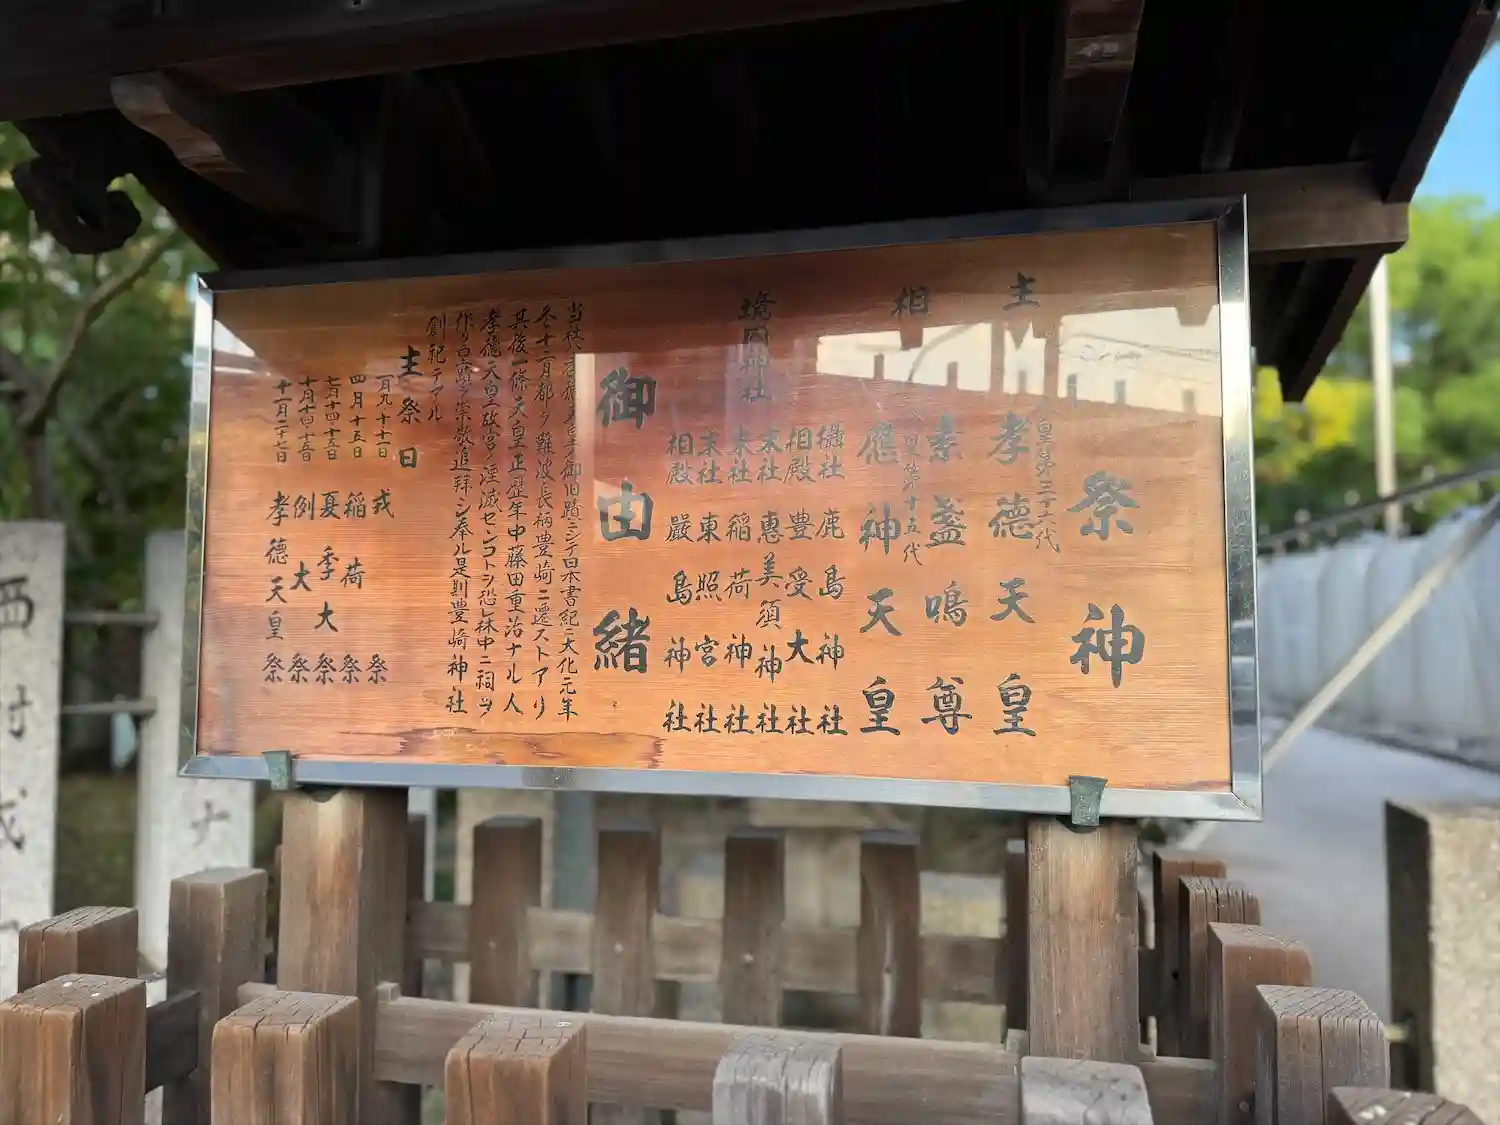 祭神
主 孝德天皇
皇第三十六代
素盞嗚尊
相 應神天皇
皇第十五代
境内神社
攝社 鹿島神社
相殿 豊受大社
末社 恵美須神社
末社 稲荷神社
末社 東照宮社
相殿 嚴島神社
御由緒
当社ハ孝德天皇ノ御旧蹟ニシテ日本書紀ニ大化元年
冬十二月都ヲ難波長柄豊崎ニ遷ストアリ
其後一條天皇正歴年中藤田重治ナル人
孝德天皇故宮ノ湮滅センコトヲ恐レ林中ニ祠ヲ
作リ皇霊ヲ崇敬追拝シ奉ル是則豊崎神社
創祀デアル
主祭日
一月九十十一日 戎祭
四月十五日 稲荷祭
七月十四十五日 夏季大祭
十月十四十五日 例大祭
十一月二十二日 孝德天皇祭
西村